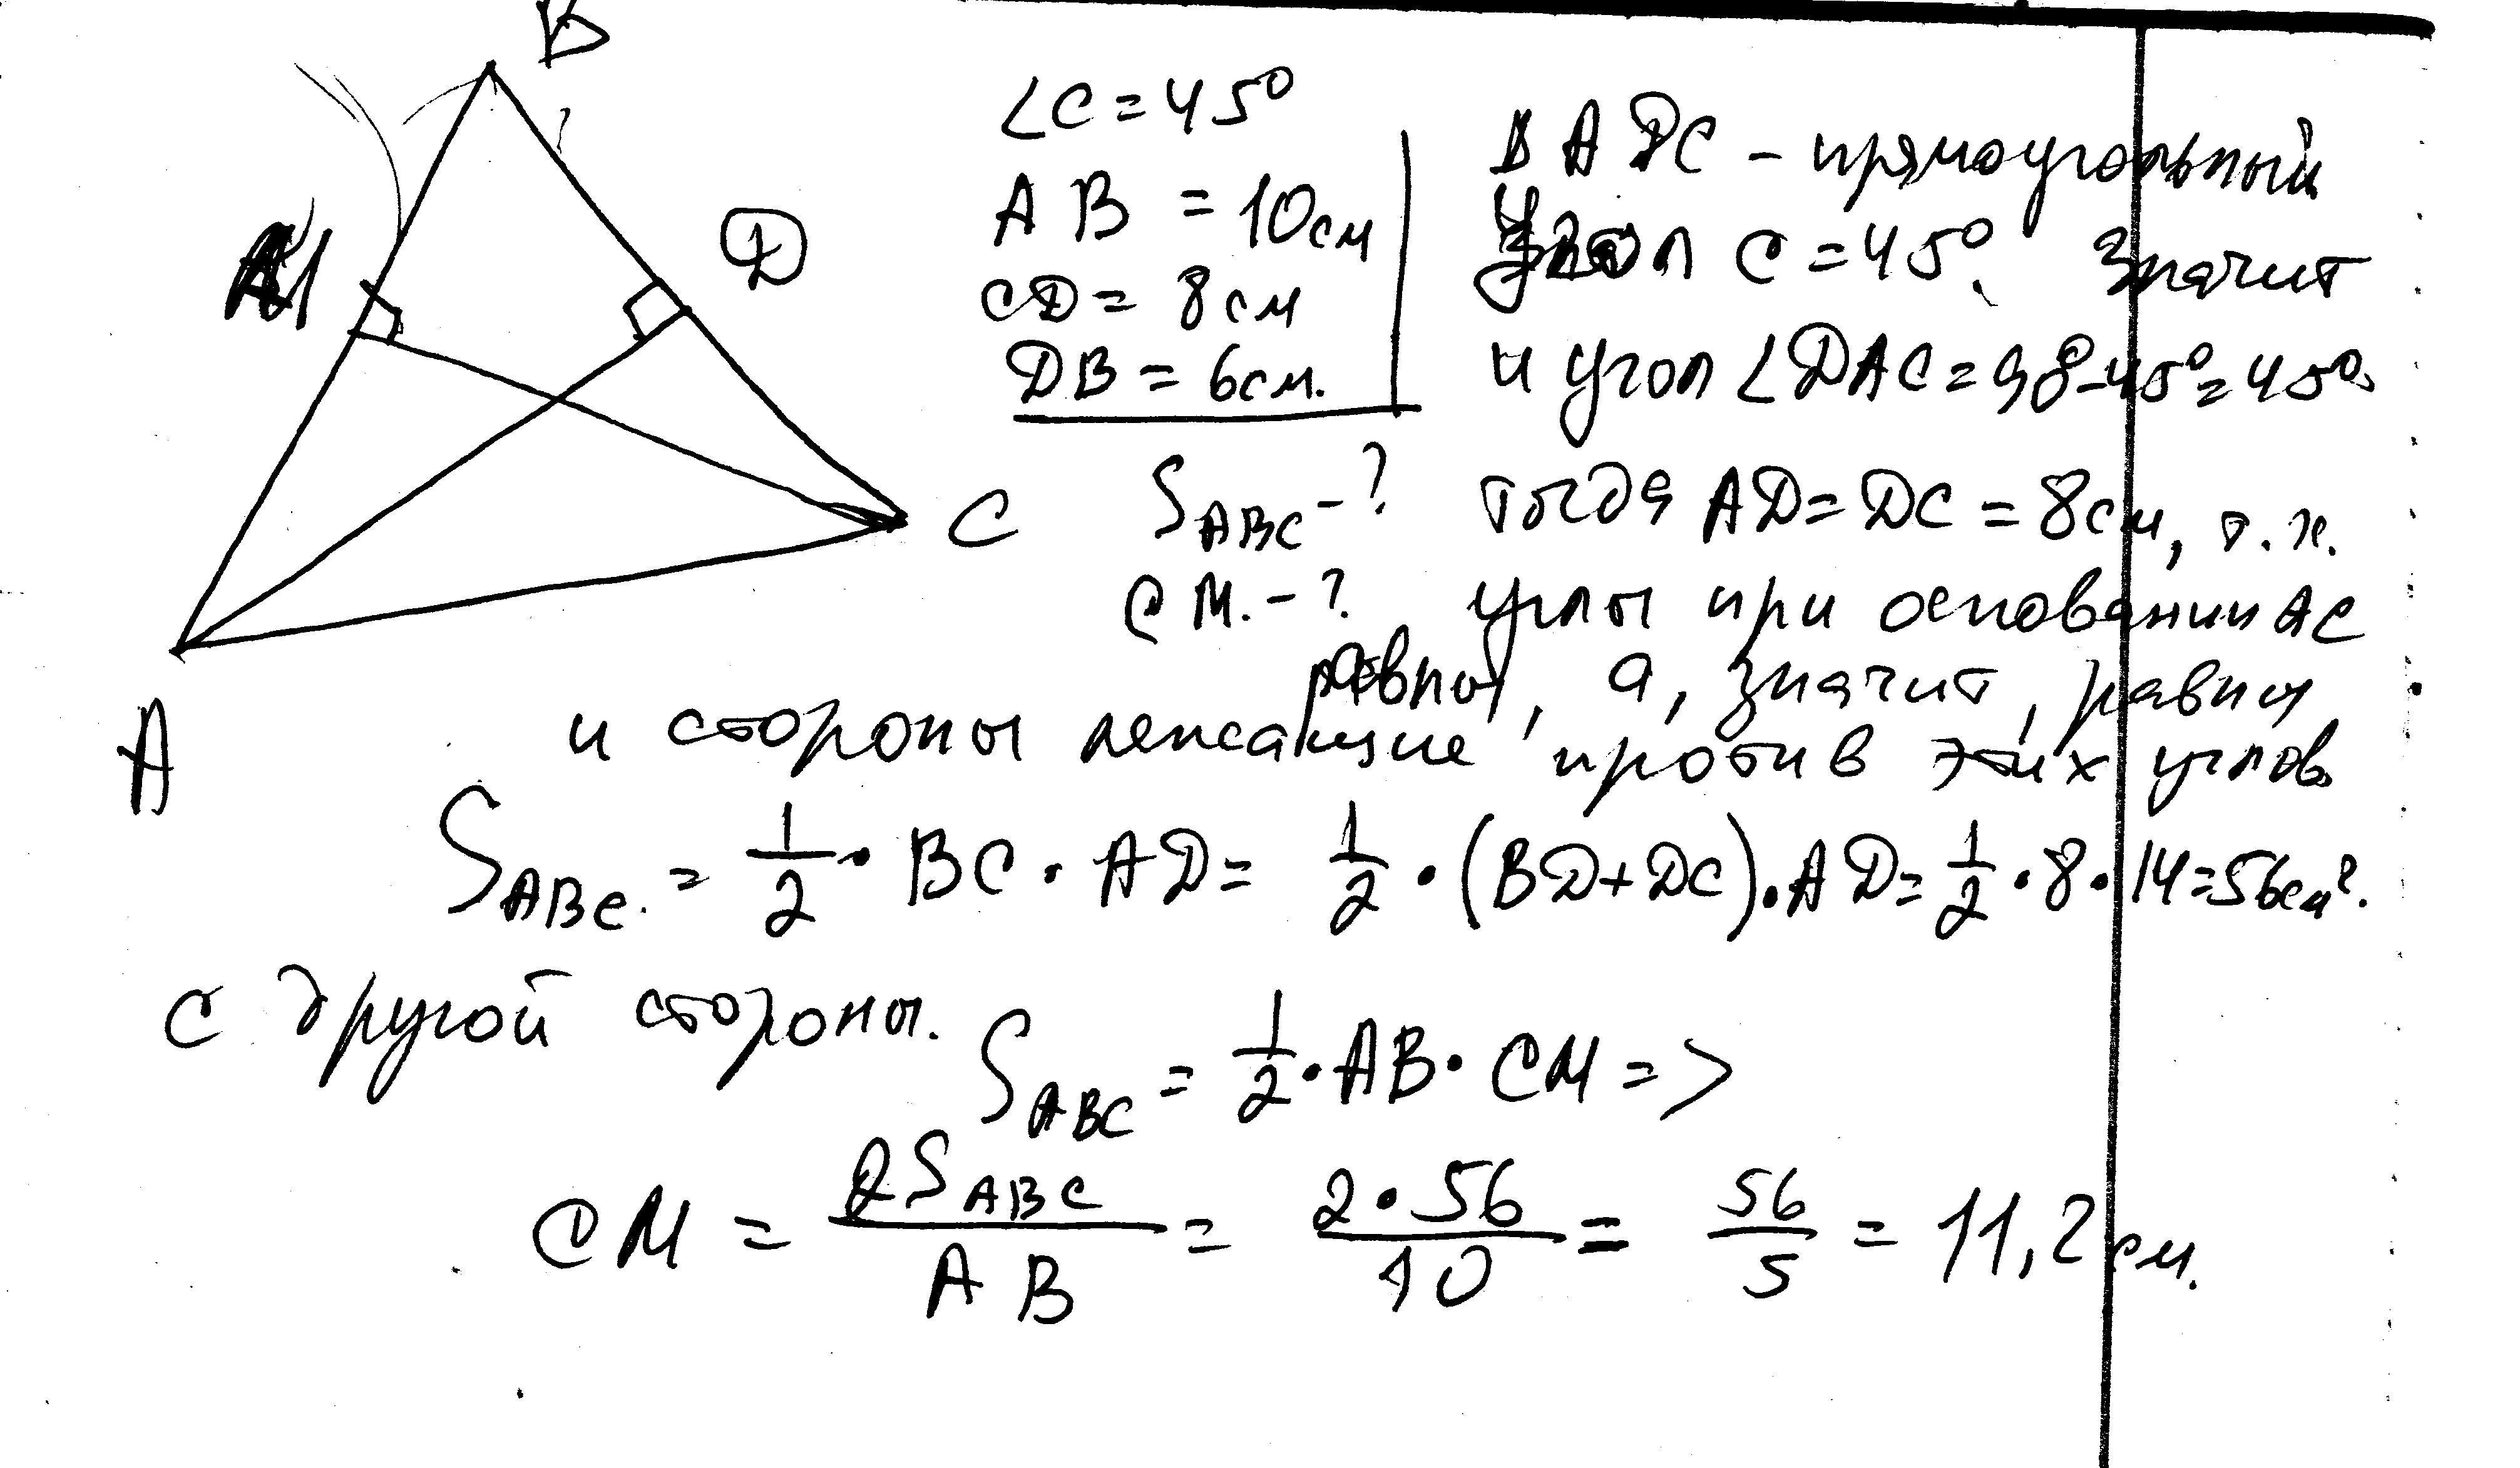 B
М
D
C
A
∠C = 45°
AB = 10см
CD = 8см
DB = 6см.
S_ABC - ?
CM. - ?
В ADC - прямоугольный
Угол C = 45°. Значит
и угол ∠DAC = 90°-45° = 45°.
тогда AD = DC = 8см, т.к.
углы при основании AC
равны, а, значит, равны
и стороны лежащие против этих углов
S_ABC. = 1/2 · BC · AD = 1/2 · (BD+DC) · AD = 1/2 · 8 · 14 = 56см².
с другой стороны.
S_ABC = 1/2 · AB · CM =>
CM = 2S_ABC / AB = 2·56 / 10 = 56/5 = 11,2см.